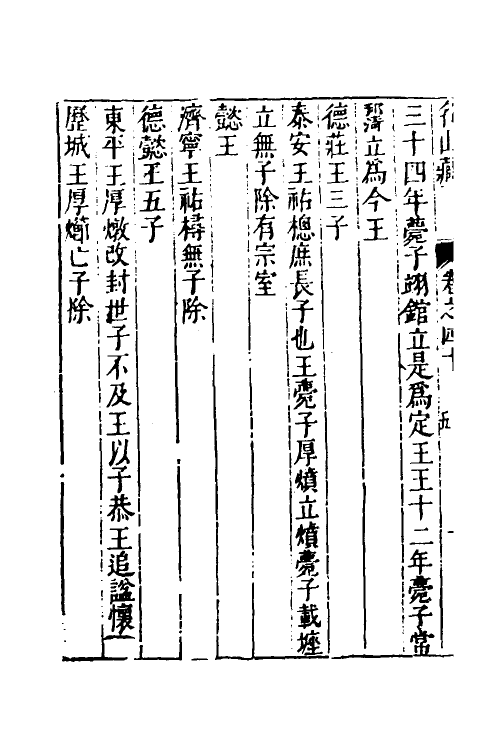 名山藏 卷之四十 五
三十四年薨子翊錧立是爲定王王十二年薨子常
立爲今王
德莊王三子
泰安王祐樬庶長子也王薨子厚燌立燌薨子載
立無子除有宗室
懿王
濟寧王祐檮無子除
德懿王五子
東平王厚燉改封世子不及王以子恭王追諡懷
歷城王厚㸅亡子除